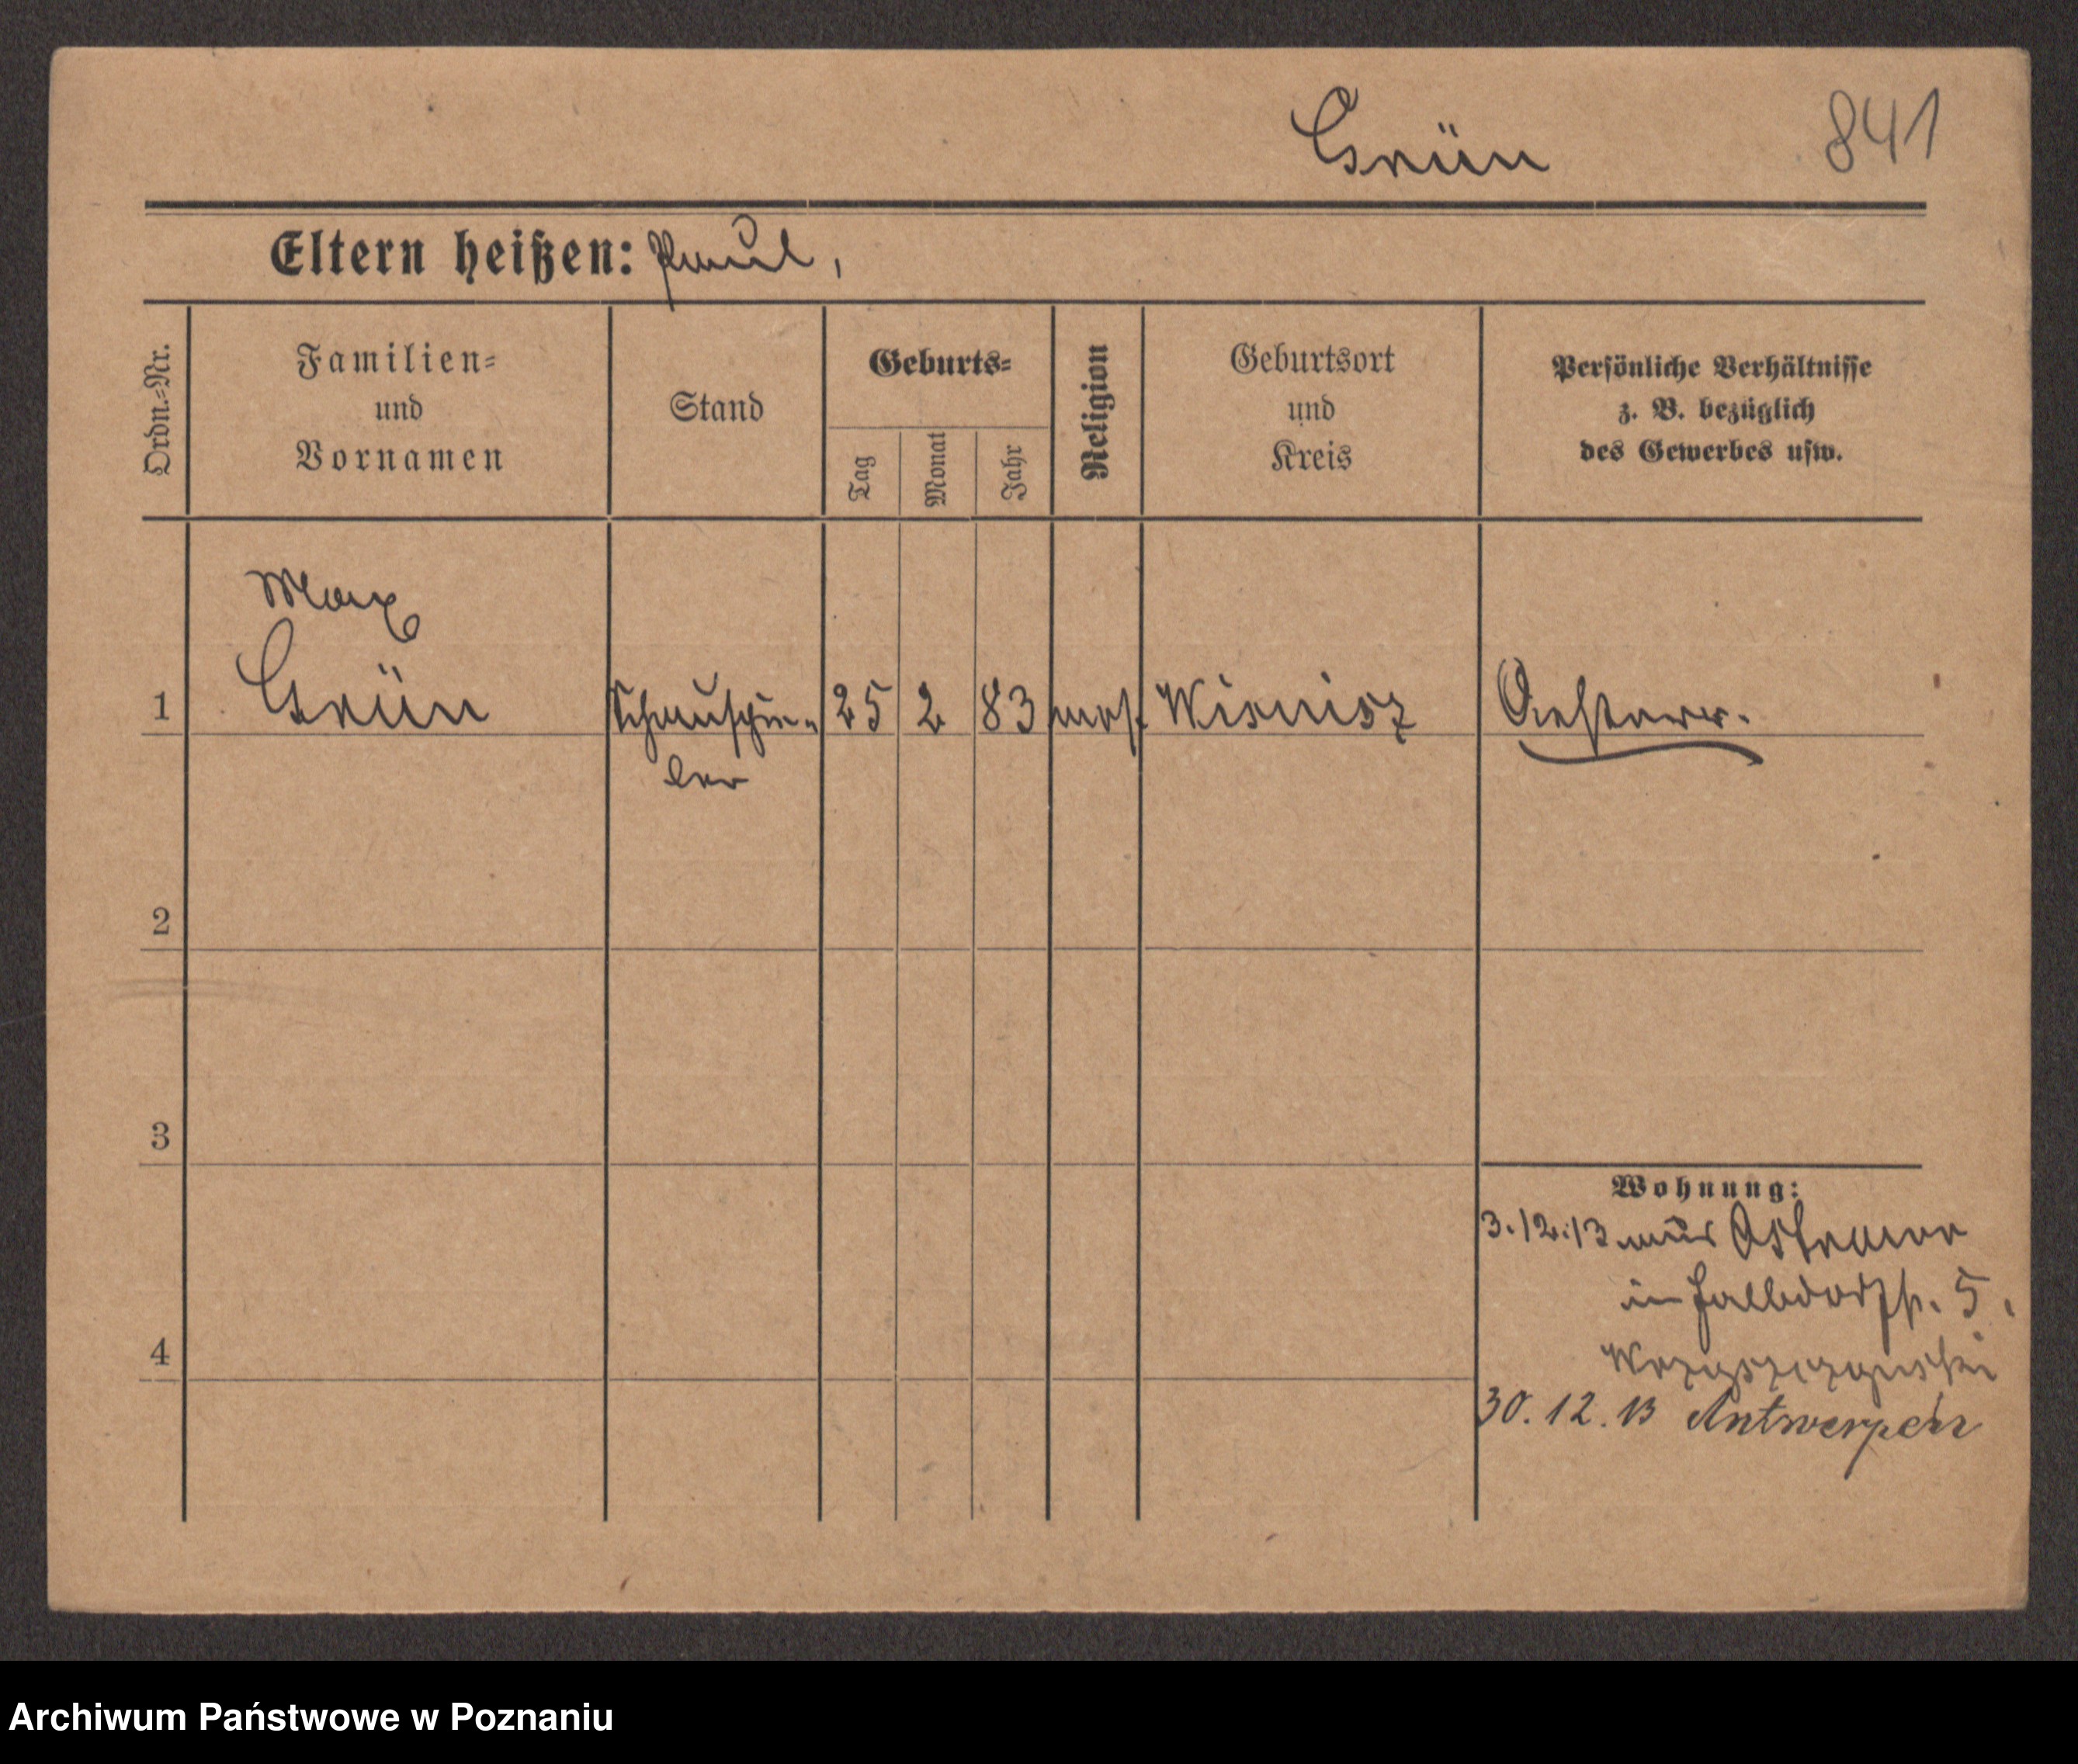 Grün 841
Eltern heißen: Paul,
Ordn.-Nr.
Familien-
und
Vornamen
Stand
Geburts-
Tag
Monat
Jahr
Religion
Geburtsort
und
Kreis
Persönliche Verhältnisse
z. B. bezüglich
des Gewerbes usw.
Max
1 Grün Schauspie- 25 2 83 mos. Wisnisz Oesterr.
ler
2
3
4
Wohnung:
3.12.13 aus
in Halbdorfstr. 5.
30.12.13 Antwerpen
Archiwum Państwowe w Poznaniu